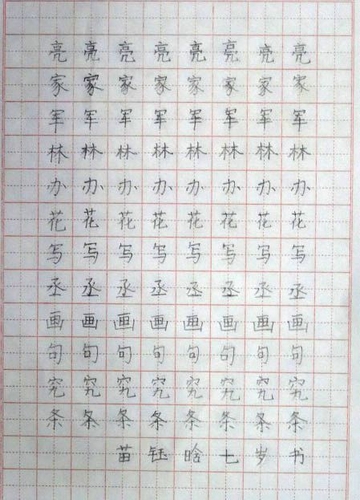 亮亮亮亮亮亮亮亮
家家家家家家家家
军军军军军军军军
林林林林林林林林
办办办办办办办办
花花花花花花花花
写写写写写写写写
丞丞丞丞丞丞丞丞
画画画画画画画画
句句句句句句句句
究究究究究究究究
条条条条条条条条
苗钰晗七岁书